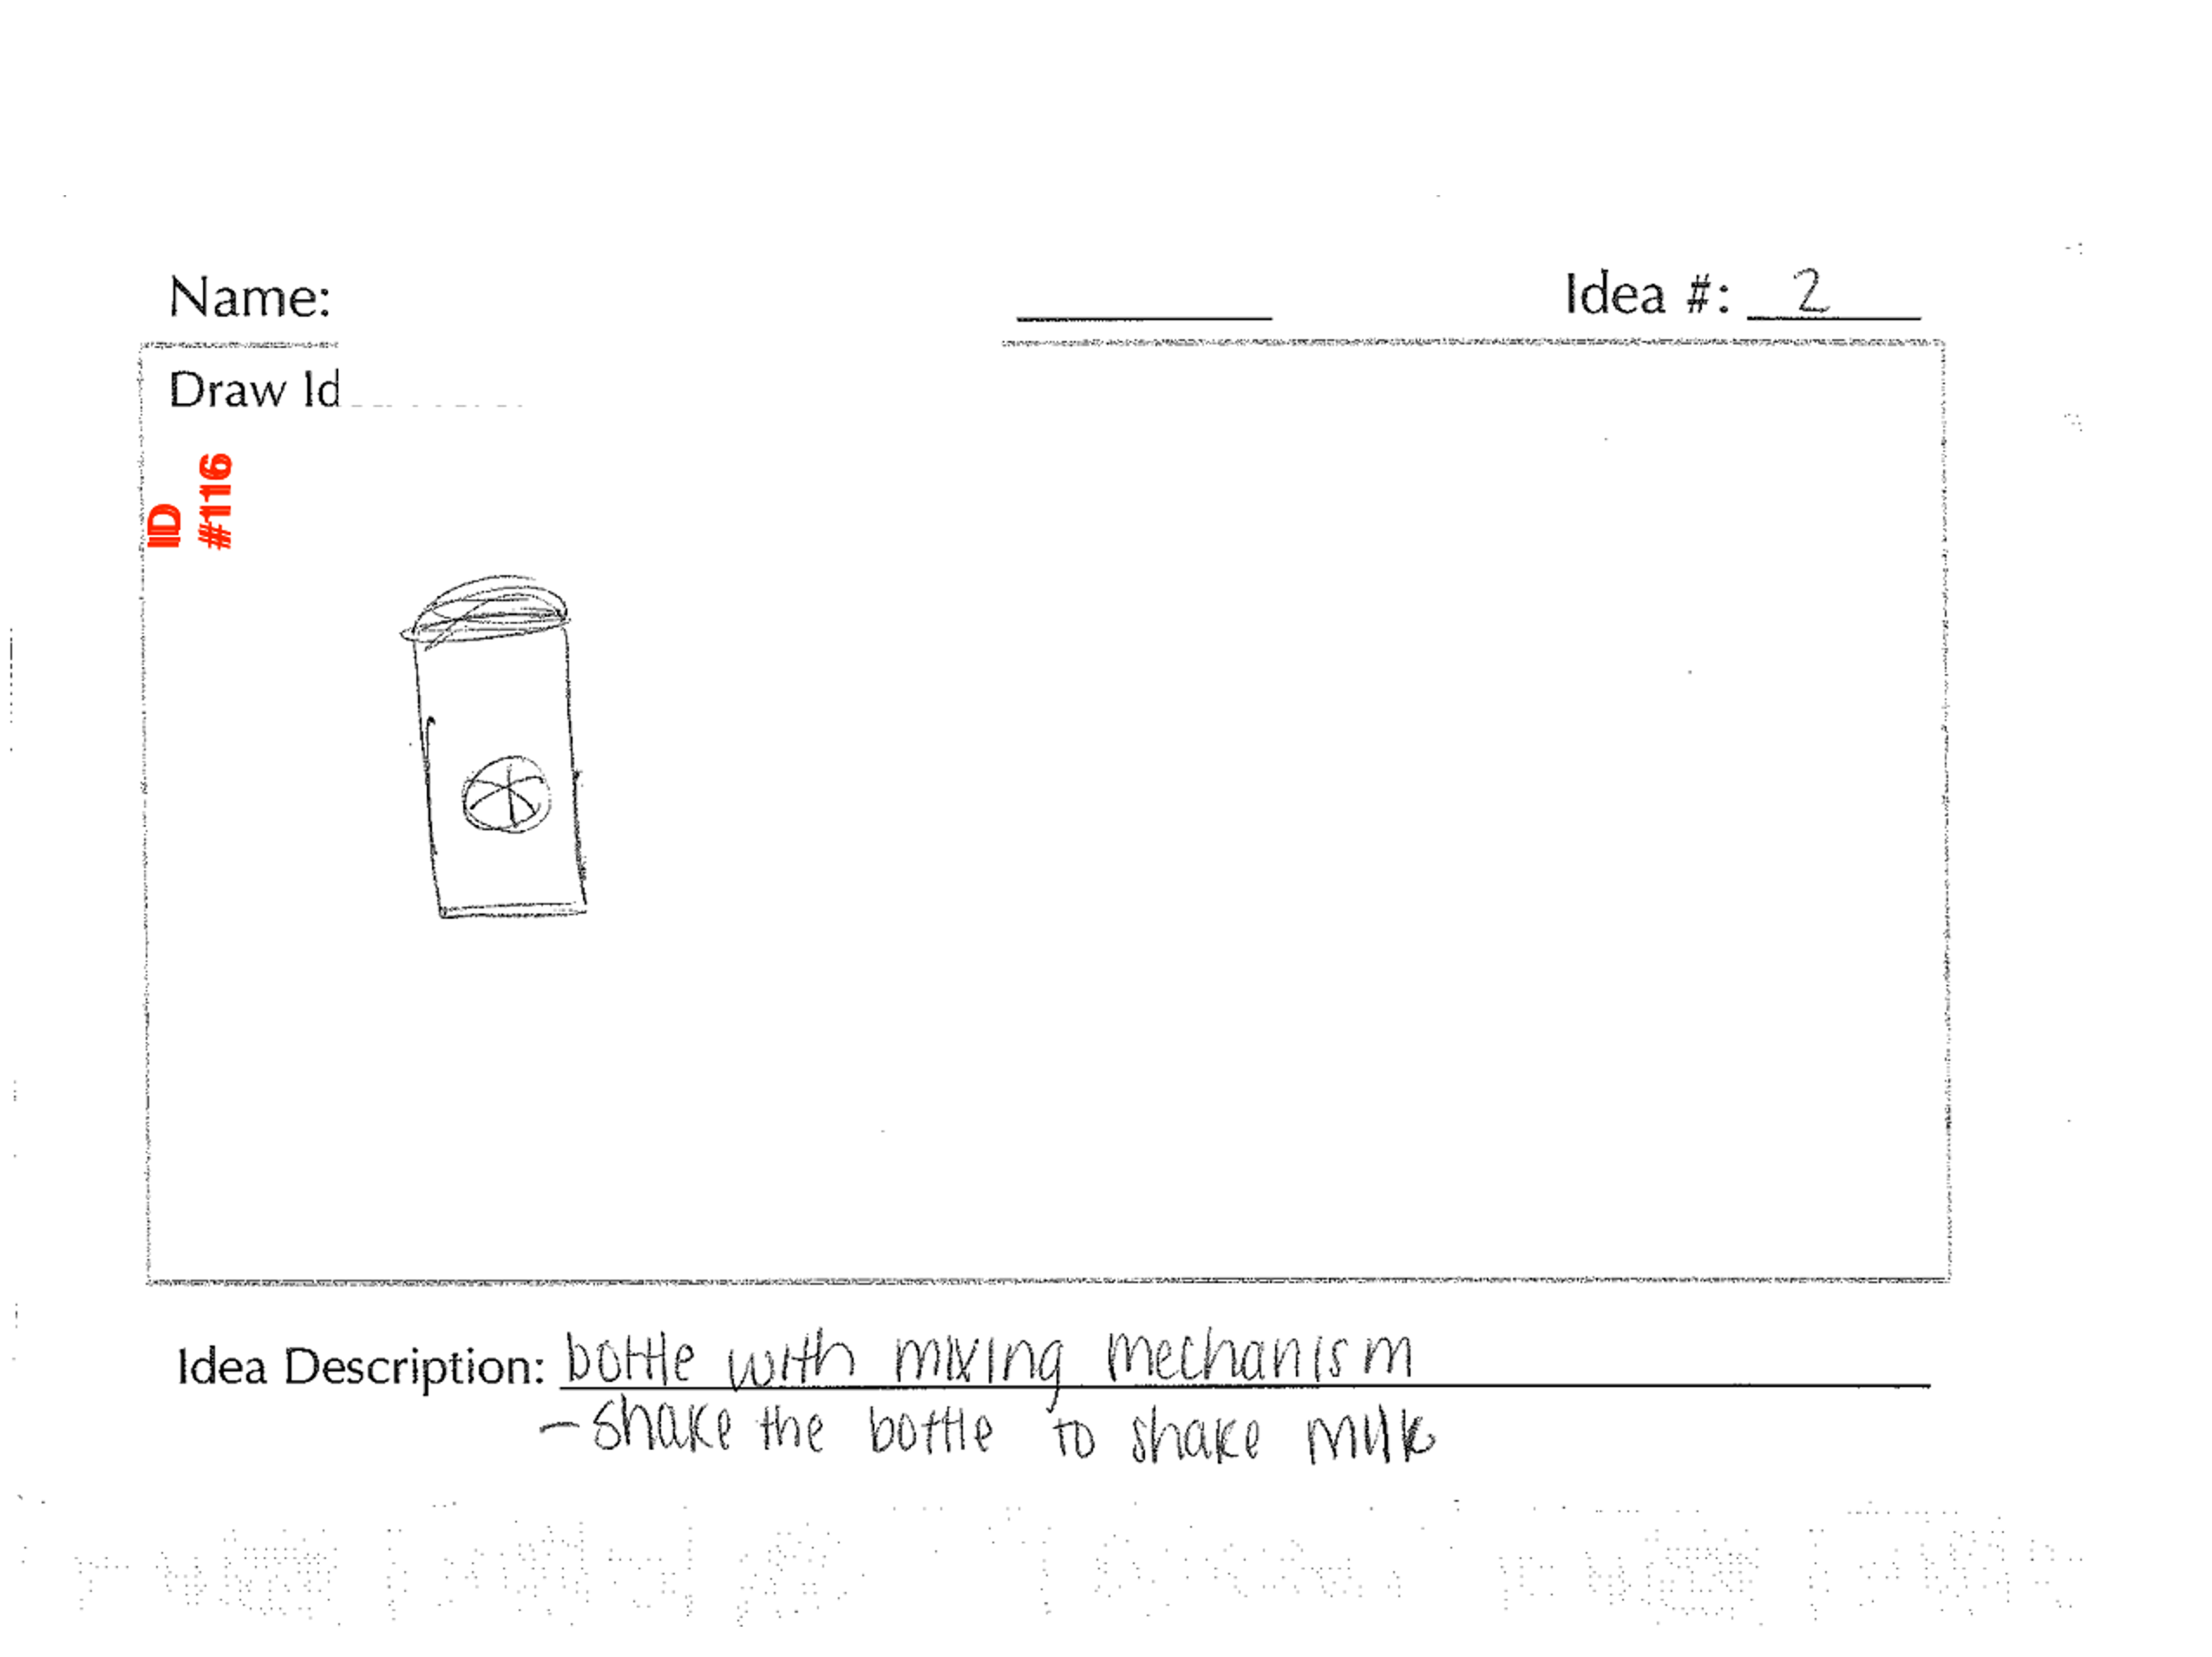 Name:
Idea #: 2
Draw Id
ID
#116
Idea Description: bottle with mixing mechanism
- shake the bottle to shake milk